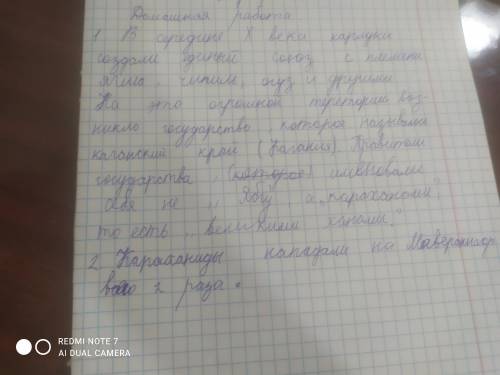 Домашная работа
1. В середине X века карлуки
создали единый союз с племена
ягма, чигил, огуз и другими
На это огромной територии воз-
никло государство, которое называли
каганский край (Кагания). Правители
государства, (которое) именовали
себя не „Ябгу", а „караханами",
то есть „великими ханами."
2. Караханиды нападали на Мавераннахр
2 раза.
REDMI NOTE 7
AI DUAL CAMERA